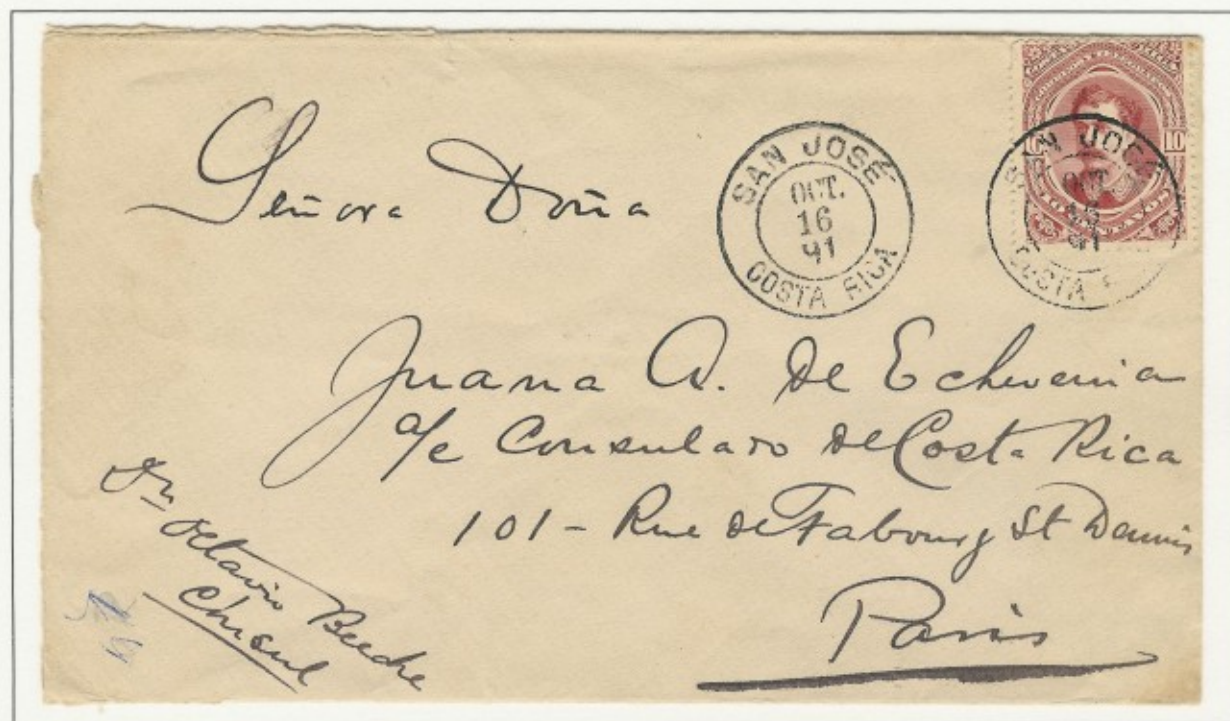 Señora Doña
SAN JOSÉ
OCT.
16
91
COSTA RICA
SAN JOSÉ
OCT.
16
91
COSTA
10
Juana A. de Echeverria
a/c Consulado de Costa Rica
101 - Rue de Fabourg St Dennis
Paris
Dn Octavio Beeche
Cónsul